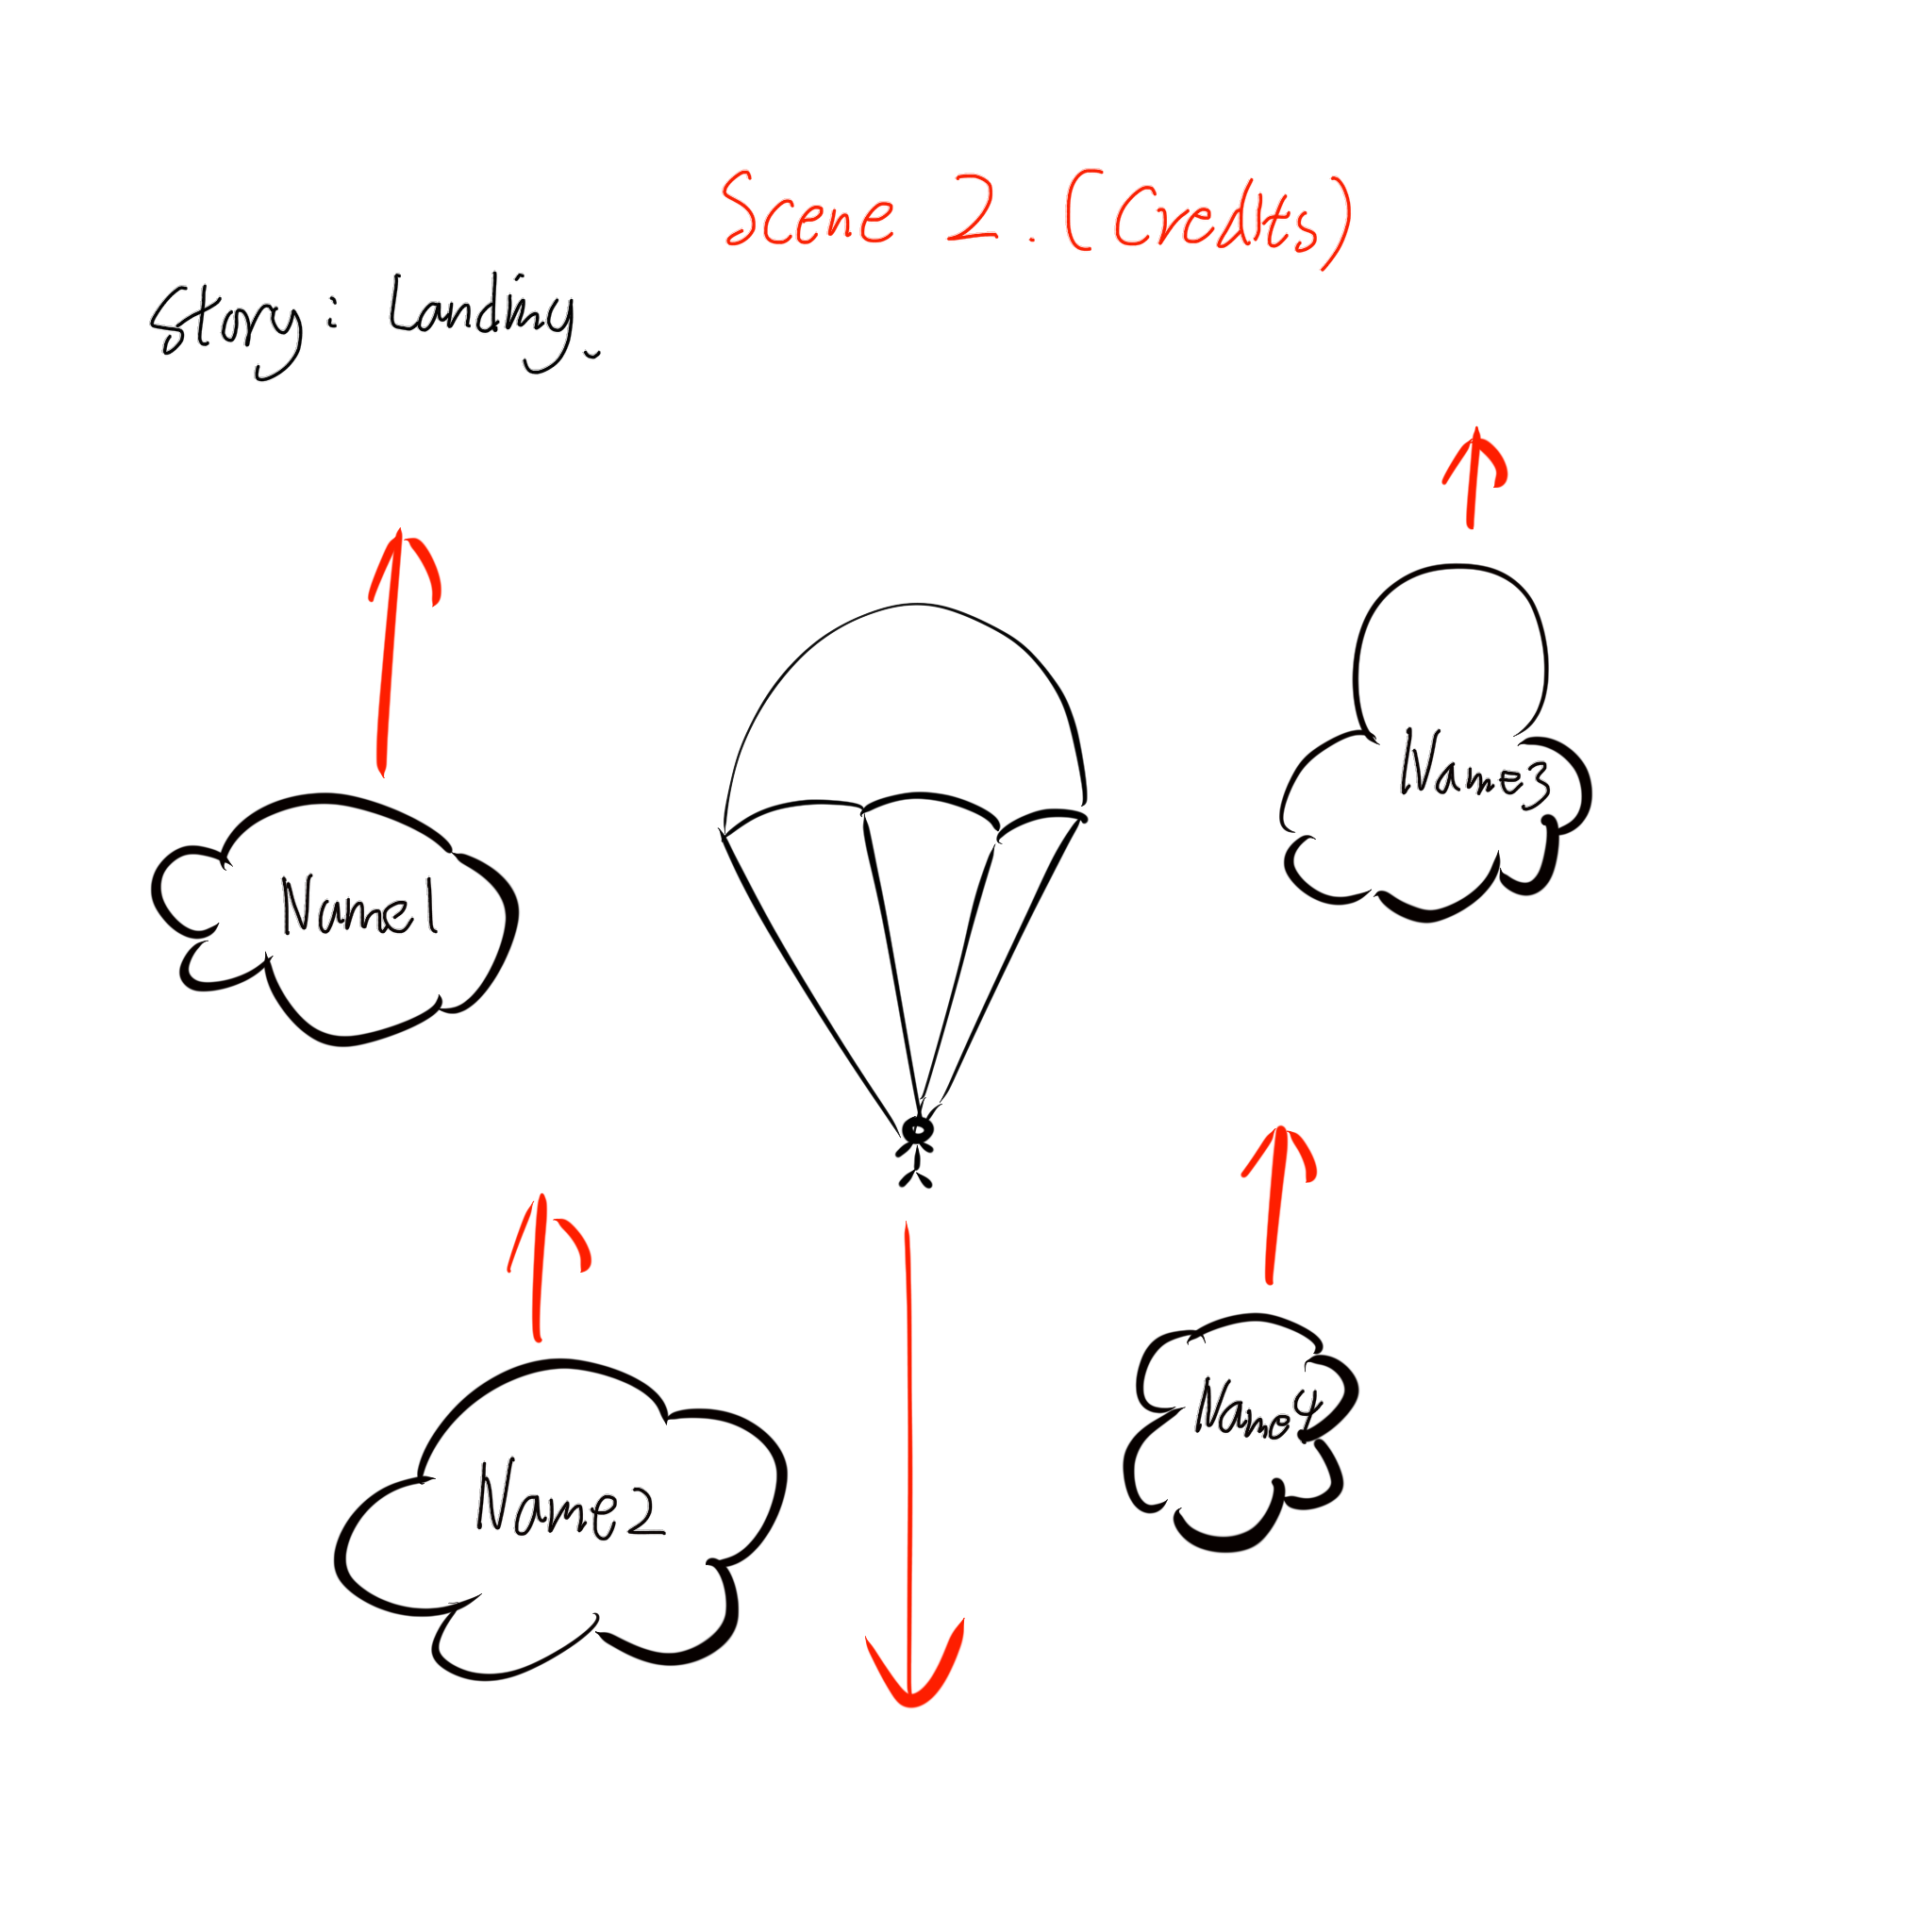 Scene 2. (Credits)
Story: Landing.
Name1
Name3
Name2
Name4